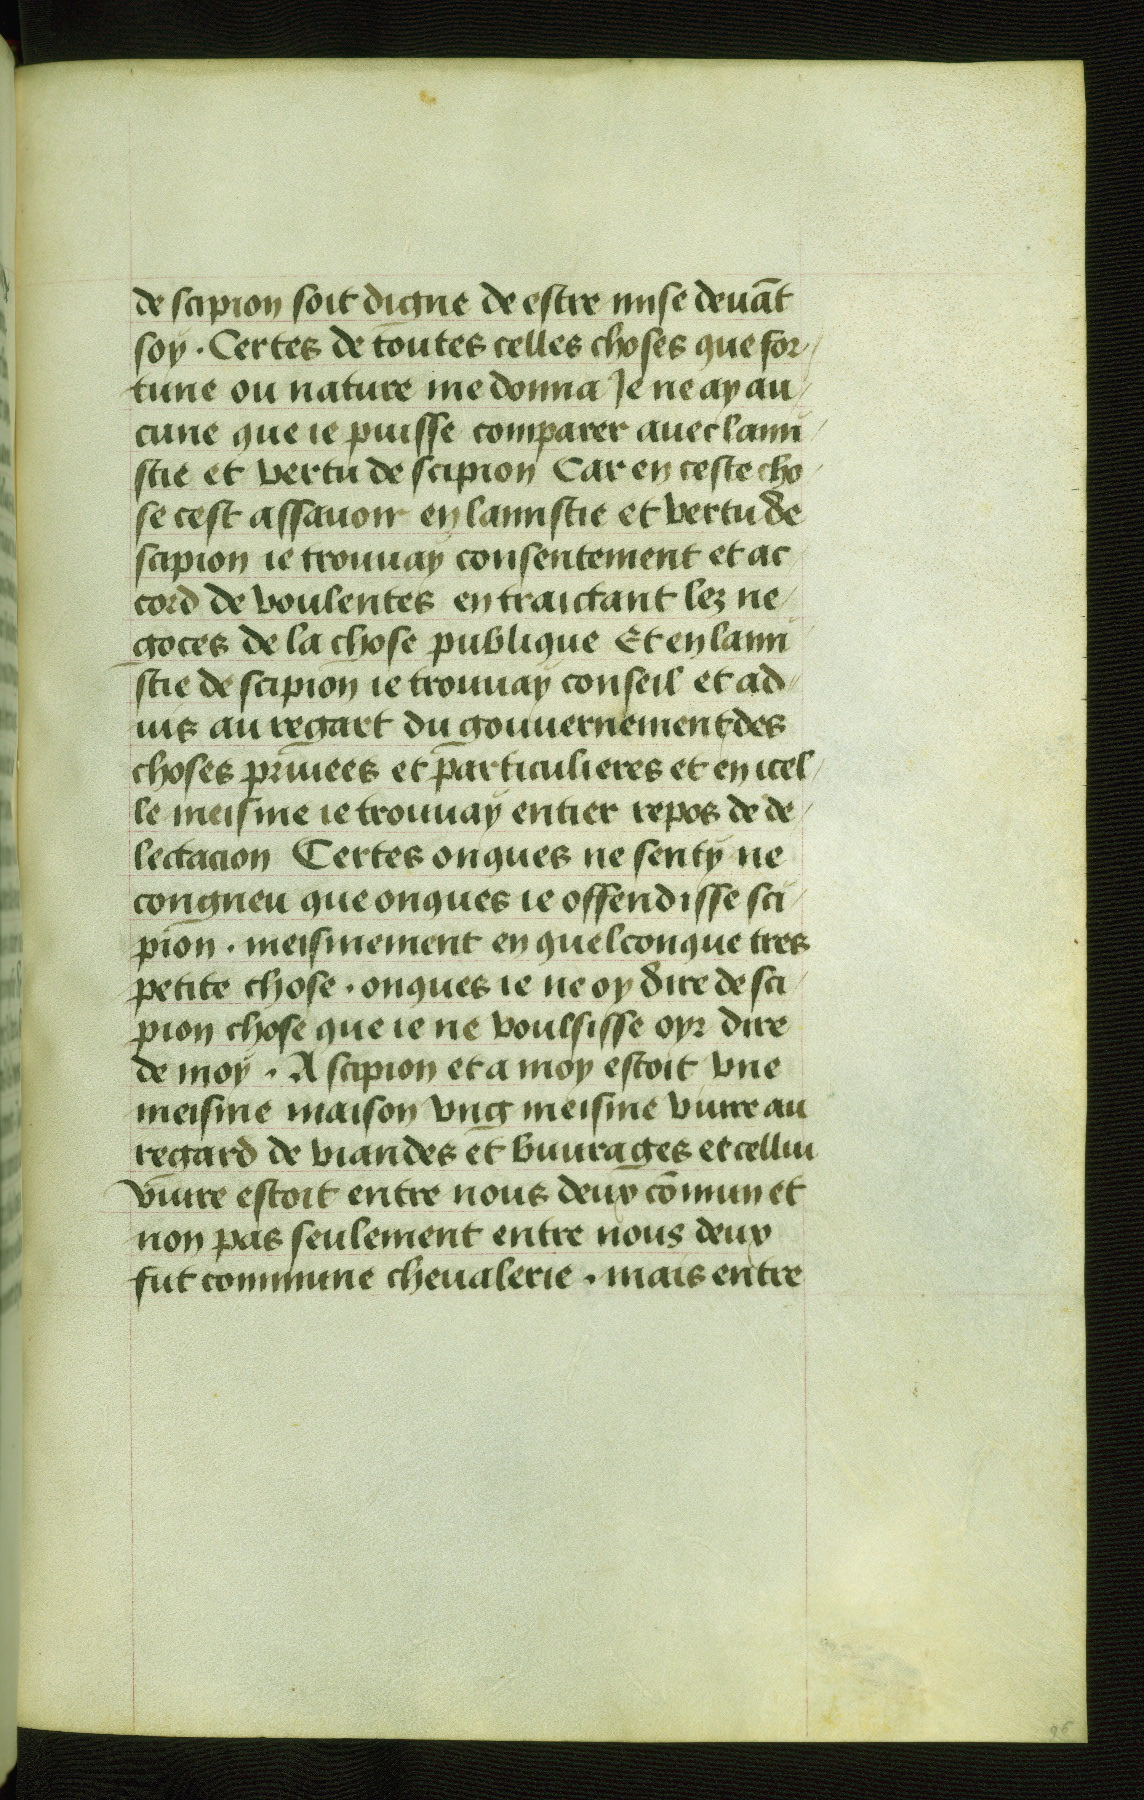 de scipion soit digne de estre mise deuāt
soy · Certes de toutes celles choses que for/
tune ou nature me donna Je ne ay au/
cune que ie puisse comparer auec lami/
stie et vertu de scipion Car en ceste cho/
se cest assauoir en lamistie et vertu de
scipion ie trouuay consentement et ac/
cord de voulentes en traictant lez ne/
goces de la chose publique Et en lami/
stie de scipion ie trouuay conseil et ad/
uis au regart du gouuernement des
choses priuees et particulieres et en icel/
le meisme ie trouuay entier repos de de/
lectacion Certes onques ne senty ne
congneu que onques ie offendisse sci/
pion · meismement en quelconque tres
petite chose · onques ie ne oy dire de sci/
pion chose que ie ne voulsisse oyr dire
de moy · A scipion et a moy estoit vne
meisme maison vng meisme viure au
regard de viandes et buurages et cellui
viure estoit entre nous deux cōmun et
non pas seulement entre nous deux
fut commune cheualerie · mais entre